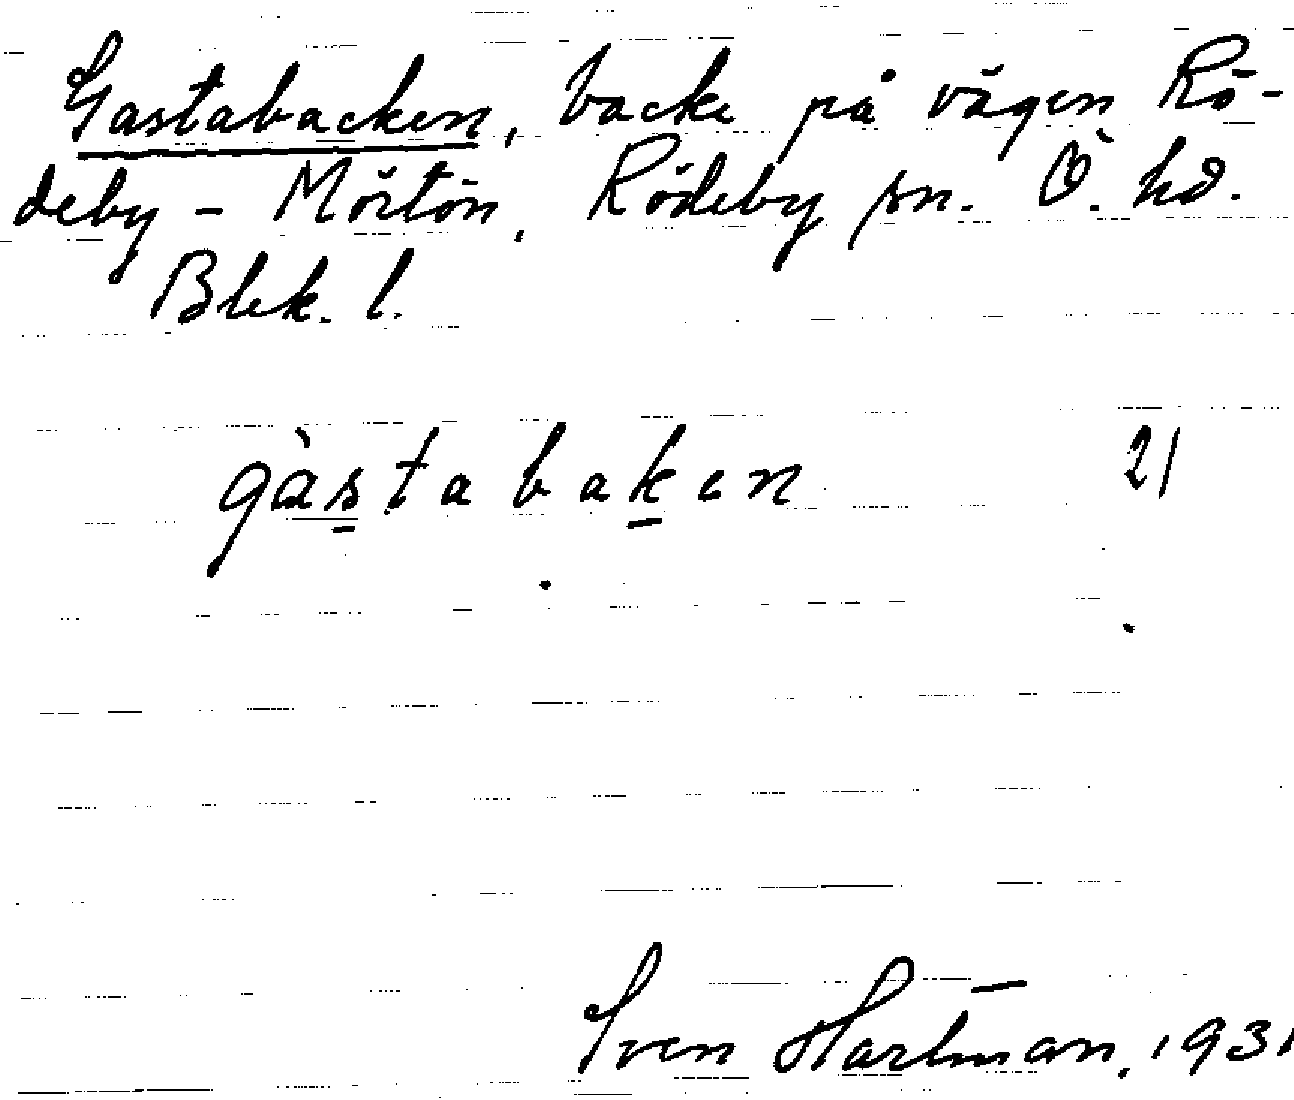 Gastabacken, backe på vägen Rö-
deby - Mörtön, Rödeby sn. Ö. hd.
Blek. l.
gàstabaken 21
Sven Hartman, 1931